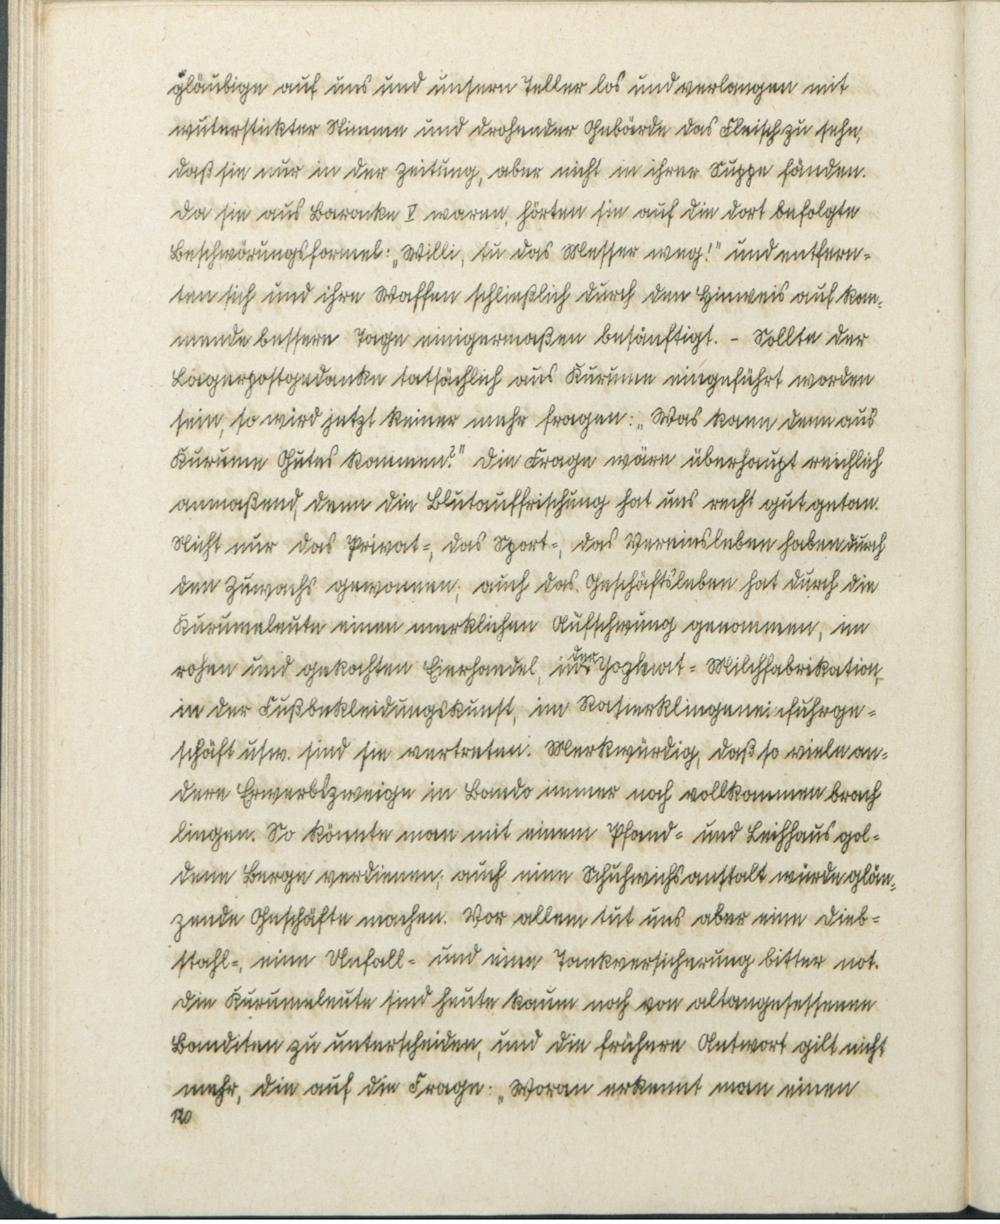 gläubige auf uns und unsern Teller los und verlangen mit
wuterstickter Stimme und drohender Gebärde das Fleisch zu sehn,
daß sie nur in der Zeitung, aber nicht in ihrer Suppe fänden.
Da sie aus Baracke V waren, hörten sie auf die dort befolgte
Beschwörungsformel: „Willi, tu das Messer weg!" und entfern-
ten sich und ihre Waffen schließlich durch den Hinweis auf kom-
mende bessere Tage einigermaßen besänftigt. - Sollte der
Lagerpostgedanke tatsächlich aus Kurume eingeführt worden
sein, so wird jetzt keiner mehr fragen: „Was kann denn aus
Kurume Gutes kommen?" Die Frage wäre überhaupt reichlich
anmaßend, denn die Blutauffrischung hat uns recht gut getan.
Nicht nur das Privat-, das Sport-, das Vereinsleben haben durch
den Zuwachs gewonnen; auch das Geschäftsleben hat durch die
Kurumeleute einen merklichen Aufschwung genommen, im
rohen und gekochten Eierhandel, in der Yoghurt-Milchfabrikation,
in der Fußbekleidungskunst, im Rasierklingeneinfuhrge-
schäft usw. sind sie vertreten. Merkwürdig, daß so viele an-
dere Erwerbszweige in Bando immer noch vollkommen brach
liegen. So könnte man mit einem Pfand- und Leihhaus gol-
dene Berge verdienen; auch eine Schuhwichsanstalt würde glän-
zende Geschäfte machen. Vor allem tut uns aber eine Dieb-
stahl-, eine Unfall- und eine Tankversicherung bitter not.
Die Kurumeleute sind heute kaum noch von altangesessenen
Banditen zu unterscheiden, und die frühere Antwort gilt nicht
mehr, die auf die Frage: „Woran erkennt man einen
120